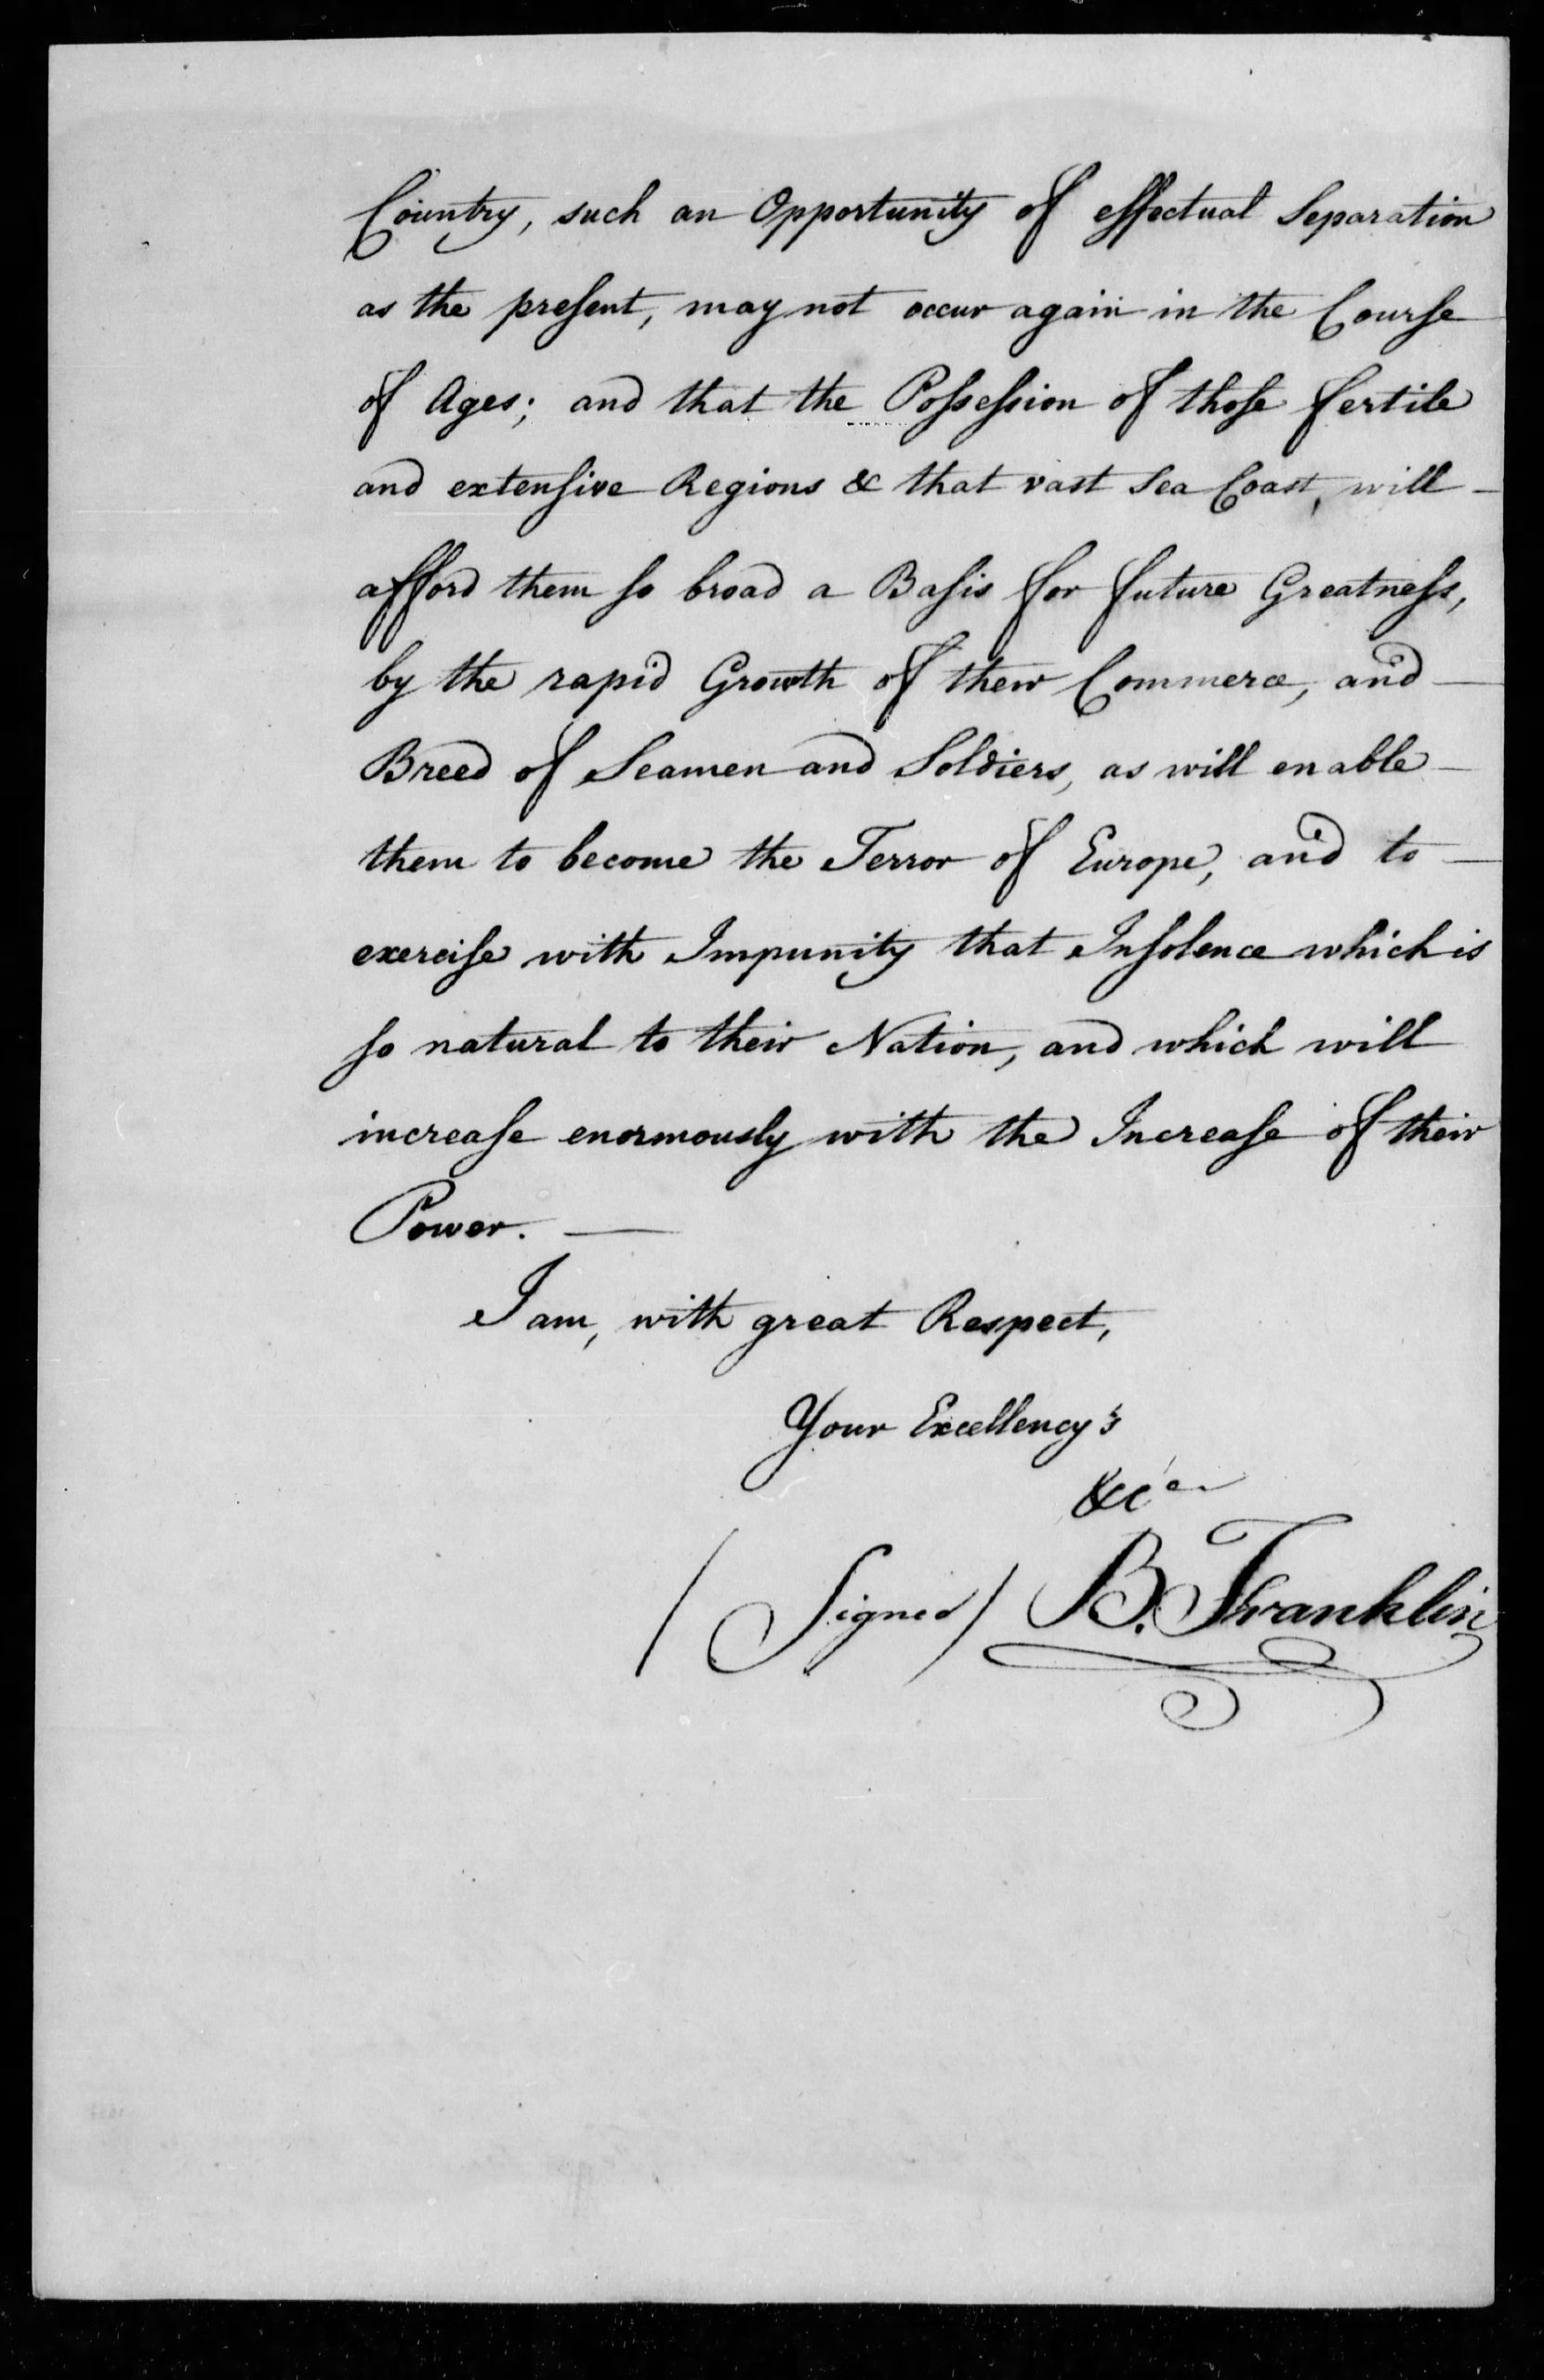 Country, such an Opportunity of effectual Separation
as the preſent, may not occur again in the Courſe
of Ages; and that the Poſseſsion of thoſe fertile
and extenſive Regions & that vast Sea Coast, will —
afford them ſo broad a Baſis for future Greatneſs,
by the rapid Growth of their Commerce, and —
Breed of Seamen and Soldiers, as will enable —
them to become the Terror of Europe, and to —
exerciſe with Impunity that Inſolence which is
ſo natural to their Nation, and which will
increaſe enormously with the Increaſe of their
Power. —
I am, with great Respect,
Your Excellency's
&ca
(Signed) B. Franklin